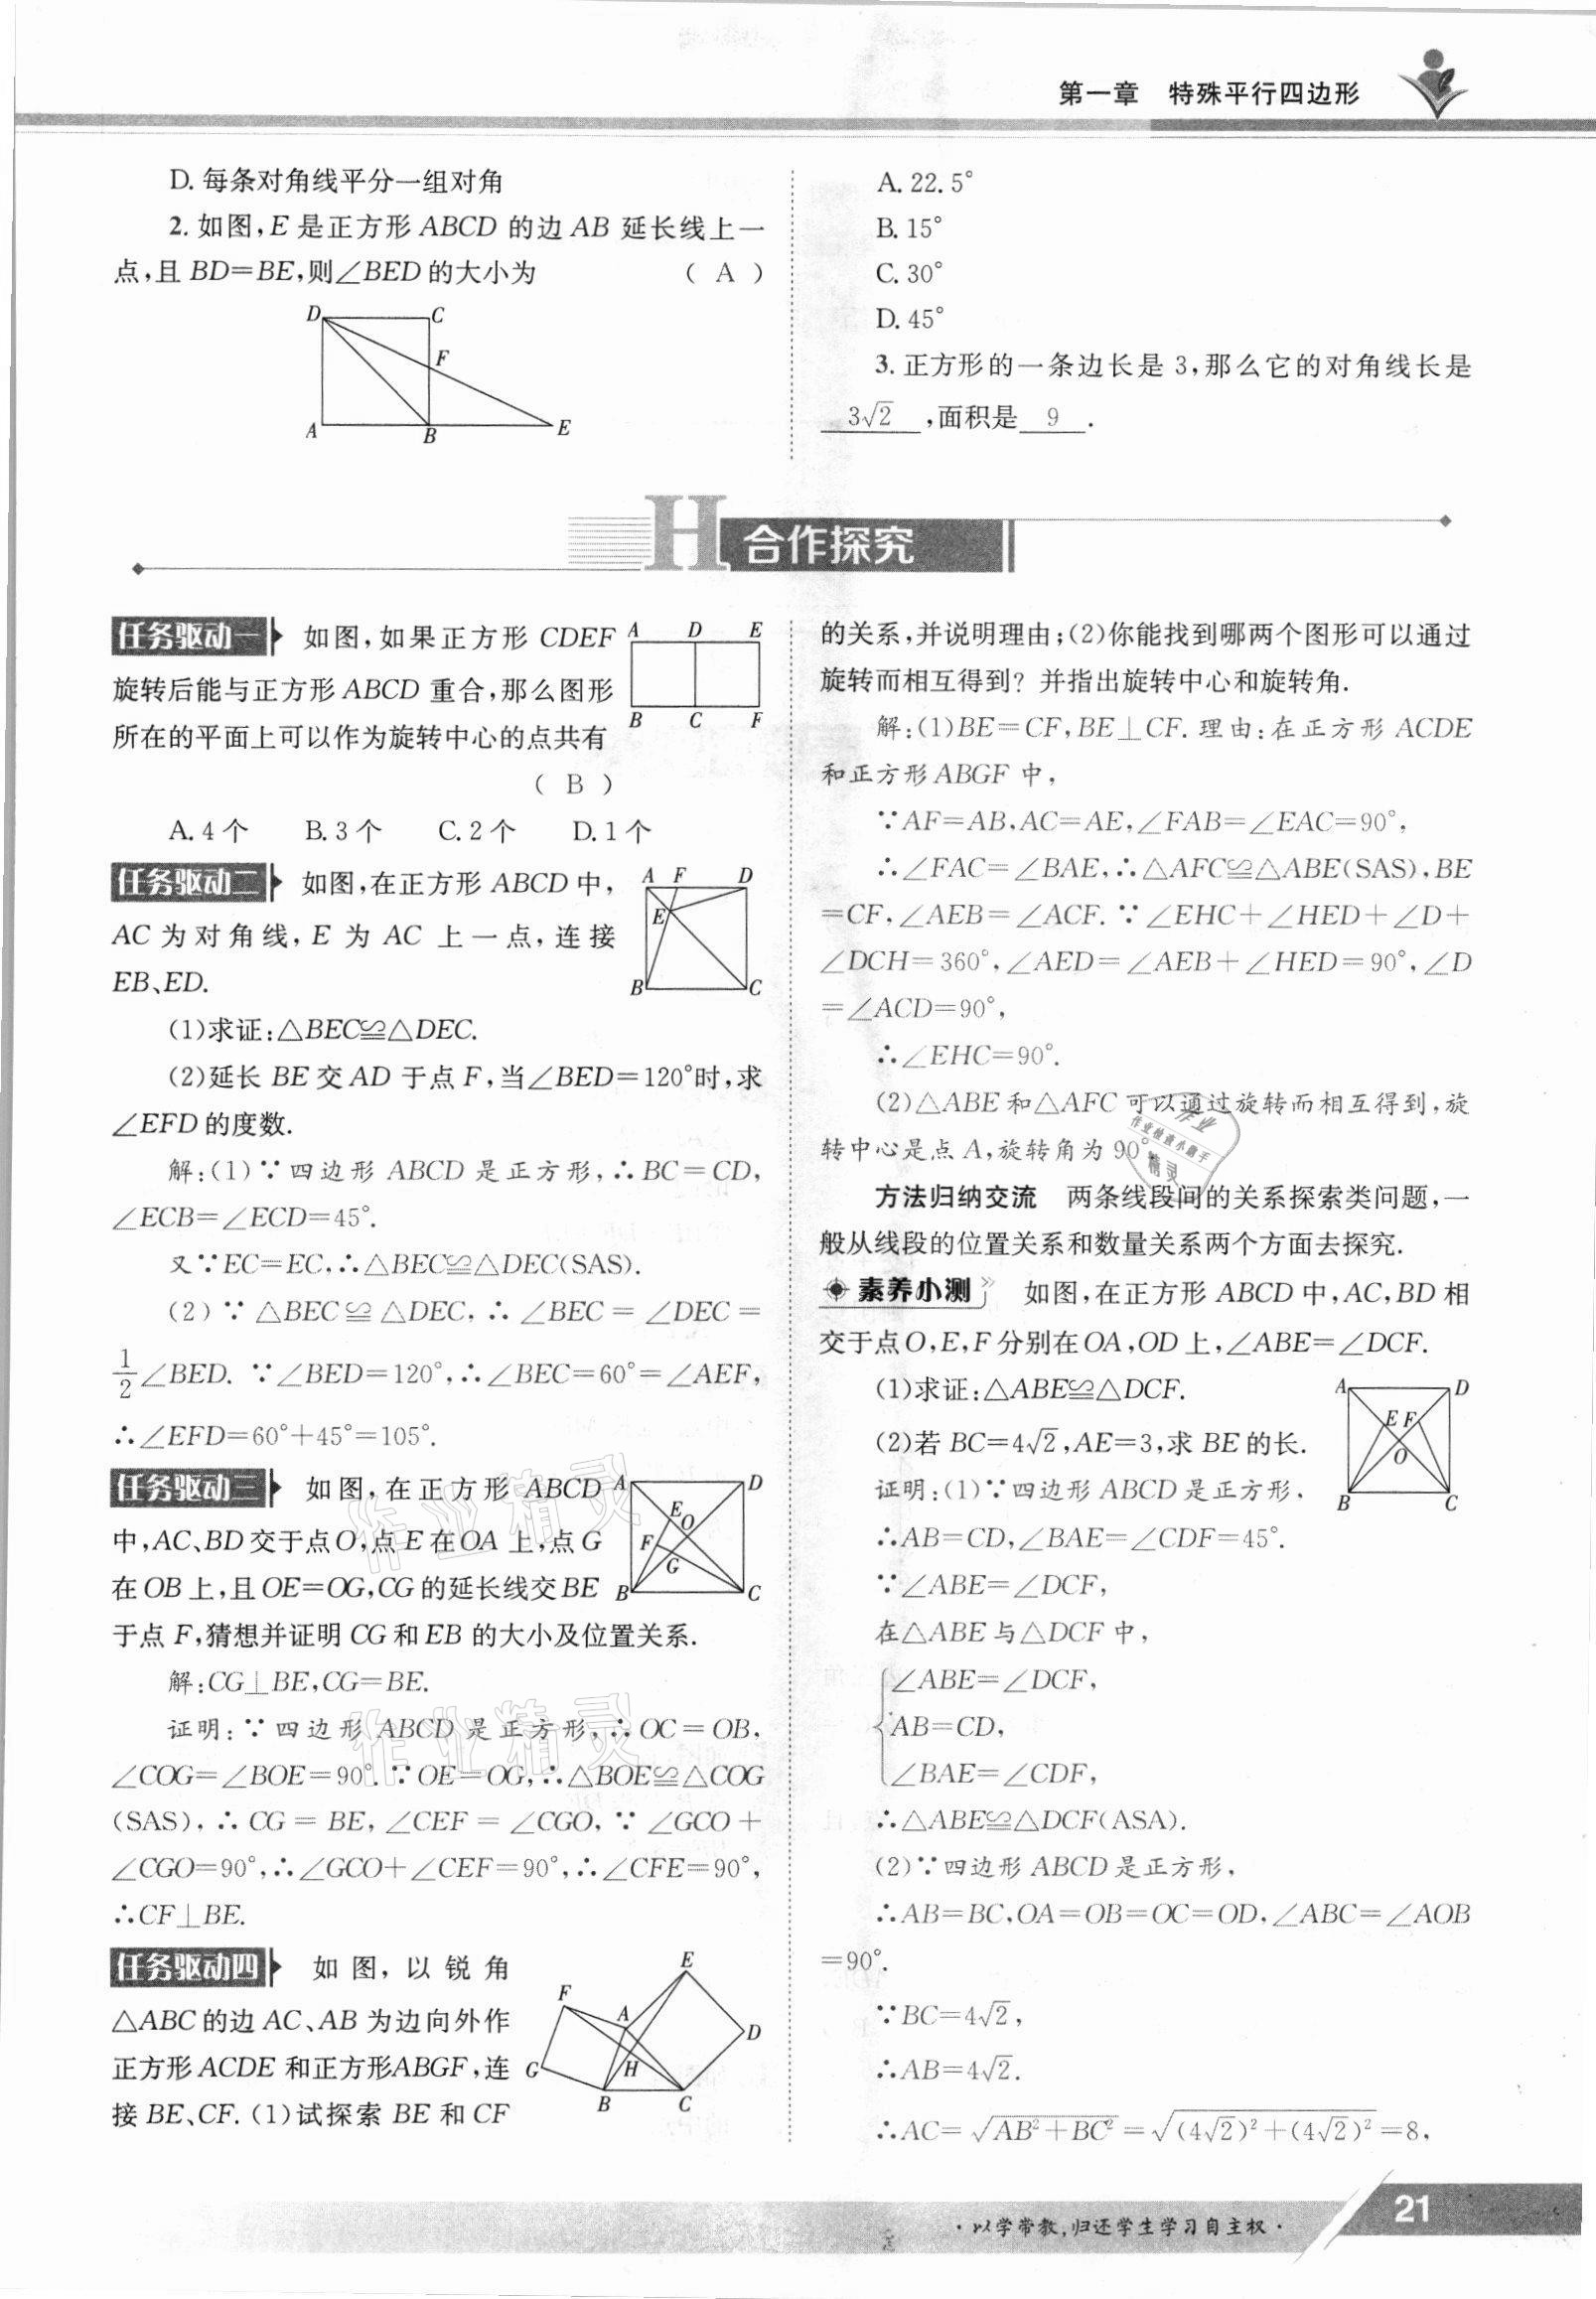 第一章 特殊平行四边形
D. 每条对角线平分一组对角
2. 如图,E 是正方形 ABCD 的边 AB 延长线上一
点,且 BD=BE,则∠BED 的大小为 ( A )
D C
F
A B E
A. 22. 5°
B. 15°
C. 30°
D. 45°
3. 正方形的一条边长是 3,那么它的对角线长是
3√2 ,面积是 9 .
H 合作探究
任务驱动一 如图,如果正方形 CDEF
旋转后能与正方形 ABCD 重合,那么图形
所在的平面上可以作为旋转中心的点共有
( B )
A D E
B C F
A. 4 个 B. 3 个 C. 2 个 D. 1 个
任务驱动二 如图,在正方形 ABCD 中,
AC 为对角线,E 为 AC 上一点,连接
EB、ED.
A F D
E
B C
(1)求证:△BEC≌△DEC.
(2)延长 BE 交 AD 于点 F,当∠BED=120°时,求
∠EFD 的度数.
解:(1)∵四边形 ABCD 是正方形,∴BC=CD,
∠ECB=∠ECD=45°.
又∵EC=EC,∴△BEC≌△DEC(SAS).
(2)∵△BEC≌△DEC,∴∠BEC=∠DEC=
1/2∠BED. ∵∠BED=120°,∴∠BEC=60°=∠AEF,
∴∠EFD=60°+45°=105°.
任务驱动三 如图,在正方形 ABCD
中,AC、BD 交于点 O,点 E 在 OA 上,点 G
在 OB 上,且 OE=OG,CG 的延长线交 BE
于点 F,猜想并证明 CG 和 EB 的大小及位置关系.
A D
E O
F G
B C
解:CG⊥BE,CG=BE.
证明:∵四边形 ABCD 是正方形,∴OC=OB,
∠COG=∠BOE=90°.∵OE=OG,∴△BOE≌△COG
(SAS),∴CG=BE,∠CEF=∠CGO,∵∠GCO+
∠CGO=90°,∴∠GCO+∠CEF=90°,∴∠CFE=90°,
∴CF⊥BE.
任务驱动四 如图,以锐角
△ABC 的边 AC、AB 为边向外作
正方形 ACDE 和正方形ABGF,连
接 BE、CF. (1)试探索 BE 和 CF
E
F A
D
G H
B C
的关系,并说明理由;(2)你能找到哪两个图形可以通过
旋转而相互得到? 并指出旋转中心和旋转角.
解:(1)BE=CF,BE⊥CF. 理由:在正方形 ACDE
和正方形 ABGF 中,
∵AF=AB,AC=AE,∠FAB=∠EAC=90°,
∴∠FAC=∠BAE,∴△AFC≌△ABE(SAS),BE
=CF,∠AEB=∠ACF. ∵∠EHC+∠HED+∠D+
∠DCH=360°,∠AED=∠AEB+∠HED=90°,∠D
=∠ACD=90°,
∴∠EHC=90°.
(2)△ABE 和△AFC 可以通过旋转而相互得到,旋
转中心是点 A,旋转角为 90°.
方法归纳交流 两条线段间的关系探索类问题,一
般从线段的位置关系和数量关系两个方面去探究.
素养小测 如图,在正方形 ABCD 中,AC,BD 相
交于点 O,E,F 分别在 OA,OD 上,∠ABE=∠DCF.
(1)求证:△ABE≌△DCF.
(2)若 BC=4√2,AE=3,求 BE 的长.
A D
E F
O
B C
证明:(1)∵四边形 ABCD 是正方形,
∴AB=CD,∠BAE=∠CDF=45°.
∵∠ABE=∠DCF,
在△ABE 与△DCF 中,
∠ABE=∠DCF,
AB=CD,
∠BAE=∠CDF,
∴△ABE≌△DCF(ASA).
(2)∵四边形 ABCD 是正方形,
∴AB=BC,OA=OB=OC=OD,∠ABC=∠AOB
=90°.
∵BC=4√2,
∴AB=4√2.
∴AC=√(AB²+BC²)=√((4√2)²+(4√2)²)=8,
作业
作业检查小助手
精灵
作业精灵
作业精灵
·以学带教,归还学生学习自主权·
21